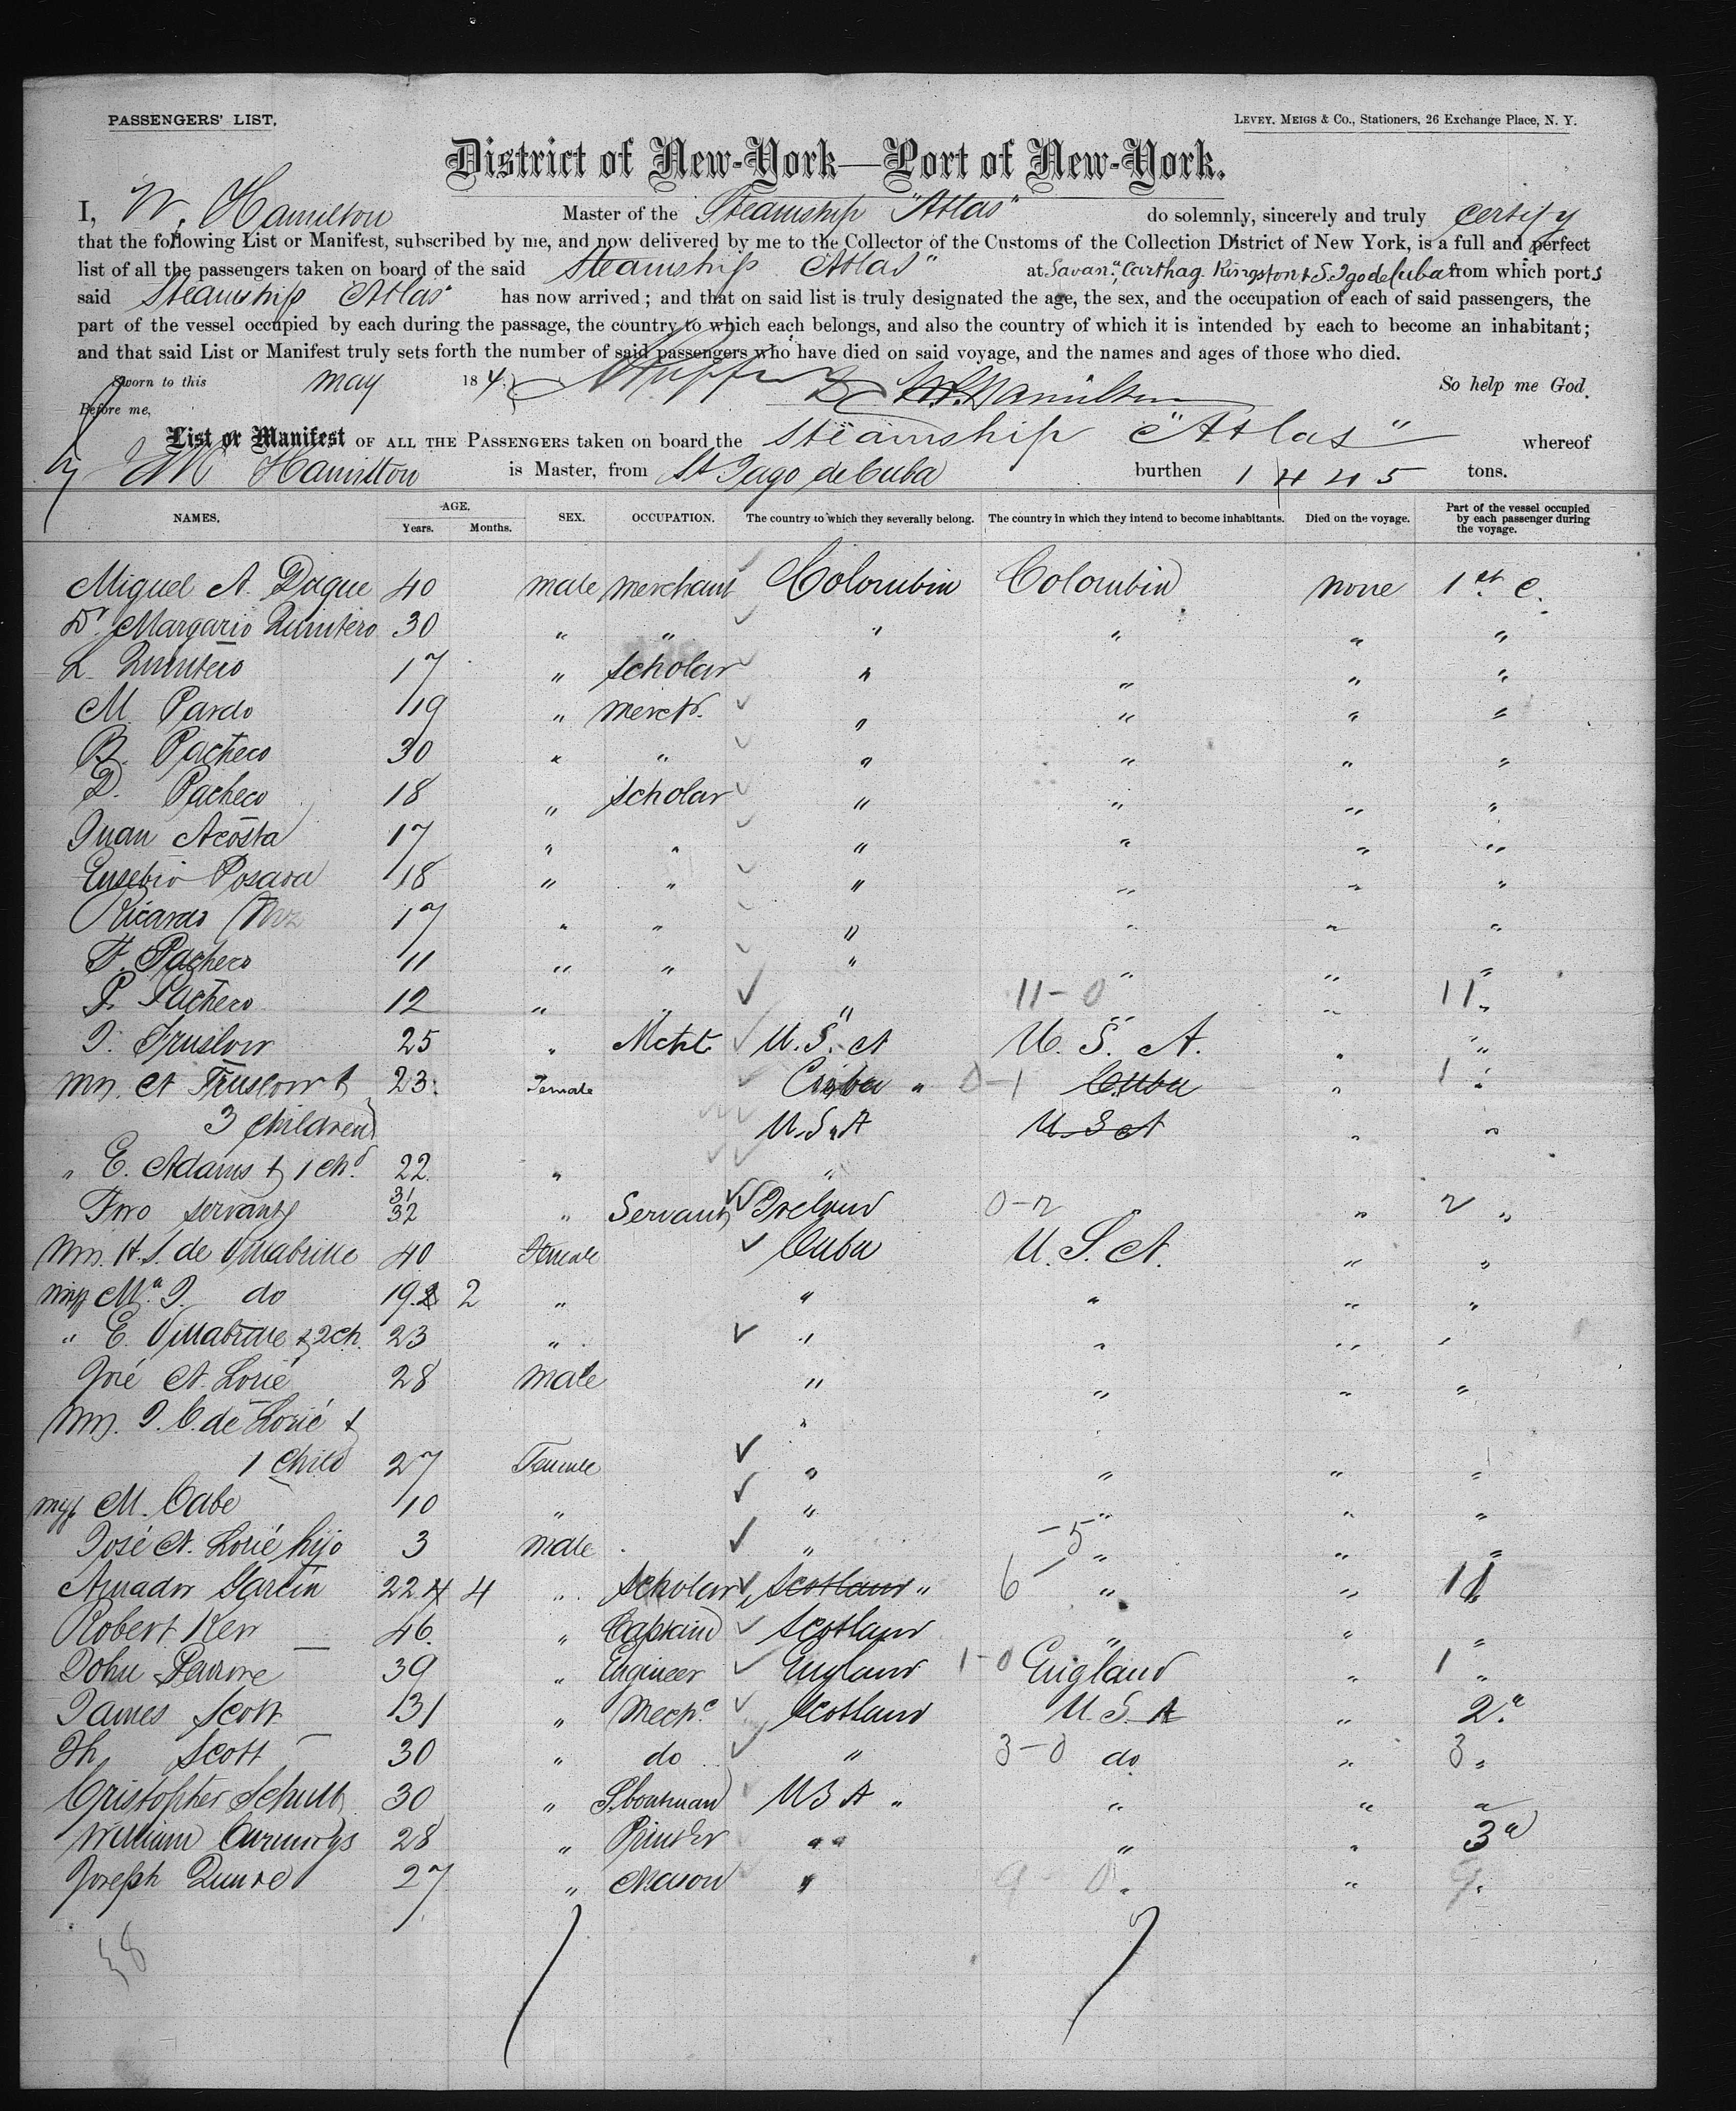 PASSENGERS' LIST.
LEVEY, MEIGS & CO., Stationers, 26 Exchange Place, N. Y.
District of New-York—Port of New-York.
I, W. Hamilton Master of the Steamship "Atlas" do solemnly, sincerely and truly certify
that the following List or Manifest, subscribed by me, and now delivered by me to the Collector of the Customs of the Collection District of New York, is a full and perfect
list of all the passengers taken on board of the said Steamship Atlas" at Savan.a, Carthag. Kingston & S. Igo de Cuba from which ports
said Steamship Atlas has now arrived; and that on said list is truly designated the age, the sex, and the occupation of each of said passengers, the
part of the vessel occupied by each during the passage, the country to which each belongs, and also the country of which it is intended by each to become an inhabitant;
and that said List or Manifest truly sets forth the number of said passengers who have died on said voyage, and the names and ages of those who died.
Sworn to this may 184 W. Hamilton So help me God.
Before me,
List or Manifest OF ALL THE PASSENGERS taken on board the Steamship "Atlas" whereof
Hamilton is Master, from St Jago de Cuba burthen 1445 tons.
NAMES. AGE. Years. Months. SEX. OCCUPATION. The country to which they severally belong. The country in which they intend to become inhabitants. Died on the voyage. Part of the vessel occupied by each passenger during the voyage.
Miguel A. Duque 40 male merchant Colombia Colombia none 1st C.
Dr Margario Quintero 30 " " " " " "
L. Quintero 17 " scholar " " " "
M. Pardo 19 " mercht. " " " "
B. Pacheco 30 " " " " " "
D. Pacheco 18 " scholar " " " "
Juan Acosta 17 " " " " " "
Eusebio Posada 18 " " " " " "
Ricardo 17 " " " " " "
F. Pacheco 11 " " " " " "
P. Pacheco 12 " " " 11-0 " " 11 "
J. Truslow 25 " Mcht. U.S. A U. S. A. " "
Mrs. A Truslow & 23 Female Cuba " 0-1 Cuba " 1 "
3 children U.S.A U.S A " "
" E. Adams & 1 chd 22 " "
Two servants 31 32 " Servants Ireland 0-2 " " 2 "
Mrs. H. S. de Villabrille 40 Female Cuba U. S. A. " "
miss Ma. J. do 19.2 2 " " " " "
" E. Villabrille & 2 ch. 23 " " " " "
José A. Lorié 28 male " " " "
Mrs. J. C. de Lorié & "
1 child 27 Female " " " "
miss M. Cabe 10 " " " " "
José A. Lorié hijo 3 male " -5 " " "
Amador Garcin 22 4 4 " scholar Scotland " 6 - " " 11 "
Robert Kerr 46 " Captain Scotland " " "
John 39 " Engineer England 1-0 England " 1 "
James Scott 31 " Mechc Scotland U.S. A " 2.a
Th. Scott 30 " do " 3-0 do " 3 "
Cristopher Schultz 30 " S. boatman U S A " " " "
William Cummings 28 " Printer " " " " 3a
Joseph 27 " Mason " 9-0 " " 9 "
38